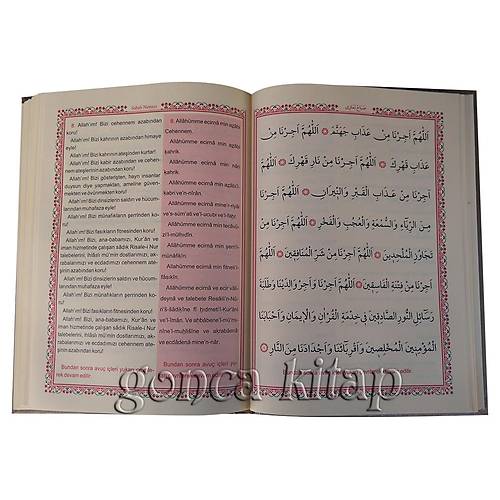 Sabah Namazı
8. Allah'ım! Bizi cehennem azabından
koru!
Allah'ım! Bizi kahrının azabından himaye
eyle!
Allah'ım! Bizi kahrının ateşinden kurtar!
Allah'ım! Bizi kabir azabından ve cehen-
nem ateşlerinin azabından koru!
Allah'ım! Bizi gösterişten, hayrı insanlar
duysun diye yapmaktan, ameline güven-
mekten ve övünmekten koru!
Allah'ım! Bizi dinsizlerin saldırı ve hücum-
larından muhafaza eyle!
Allah'ım! Bizi münafıkların şerrinden ko-
ru!
Allah'ım! Bizi fasıkların fitnesinden koru!
Allah'ım! Bizi, ana-babamızı, Kur'ân ve
iman hizmetinde çalışan sâdık Risale-i Nur
talebelerini, ihlâslı mü'min dostlarımızı, ak-
rabalarımızı ve ecdadımızı cehennem ate-
şinin azabından koru!
Allah'ım! Bizi dinsizlerin saldırı ve hücum-
larından muhafaza eyle!
Allah'ım! Bizi münafıkların şerrinden ko-
ru!
Allah'ım! Bizi fasıkların fitnesinden koru!
Allah'ım! Bizi, ana-babamızı, Kur'ân ve
iman hizmetinde çalışan sâdık Risale-i Nur
talebelerini, ihlâslı mü'min dostlarımızı, ak-
rabalarımızı ve ecdadımızı cehennem ate-
şinin azabından koru!
Bundan sonra avuç içleri
rek devam edilir.
8. Allâhümme ecirnâ min azâbi
Cehennem.
Allâhümme ecirnâ min azâbi
kahrik.
Allâhümme ecirnâ min nâri
kahrik.
Allâhümme ecirnâ min azâbi'l-
kabri ve'n-nîrân.
Allâhümme ecirnâ mine'r-riyâi
ve's-süm'ati ve'l-ucubi ve'l-fahr.
Allâhümme ecirnâ min tecâvü-
zi'l-mülhidîn.
Allâhümme ecirnâ min şerri'l-
münâfikîn
Allâhümme ecirnâ min fitneti'l-
fâsikîn.
اَللّٰهُمَّ اَجِرْنَا مِنْ عَذَابِ جَهَنَّمَ ۞ اَللّٰهُمَّ اَجِرْنَا مِنْ
عَذَابِ قَهْرِكَ ۞ اَللّٰهُمَّ اَجِرْنَا مِنْ نَارِ قَهْرِكَ ۞ اَللّٰهُمَّ
اَجِرْنَا مِنْ عَذَابِ الْقَبْرِ وَالنِّيرَانِ ۞ اَللّٰهُمَّ اَجِرْنَا
مِنَ الرِّيَاءِ وَالسُّمْعَةِ وَالْعُجُبِ وَالْفَخْرِ ۞ اَللّٰهُمَّ اَجِرْنَا مِنْ
تَجَاوُزِ الْمُلْحِدِينَ ۞ اَللّٰهُمَّ اَجِرْنَا مِنْ شَرِّ الْمُنَافِقِينَ ۞ اَللّٰهُمَّ
اَجِرْنَا مِنْ فِتْنَةِ الْفَاسِقِينَ ۞ اَللّٰهُمَّ اَجِرْنَا وَاَجِرْ وَالِدَيْنَا وَطَلَبَةَ
رَسَائِلِ النُّورِ الصَّادِقِينَ فِى خِدْمَةِ الْقُرْاٰنِ وَالْاِيمَانِ وَاَحْبَابَنَا
الْمُؤْمِنِينَ الْمُخْلِصِينَ وَاَقْرِبَائَنَا وَاَجْدَادَنَا مِنَ النَّارِ ۞
gonca kitap